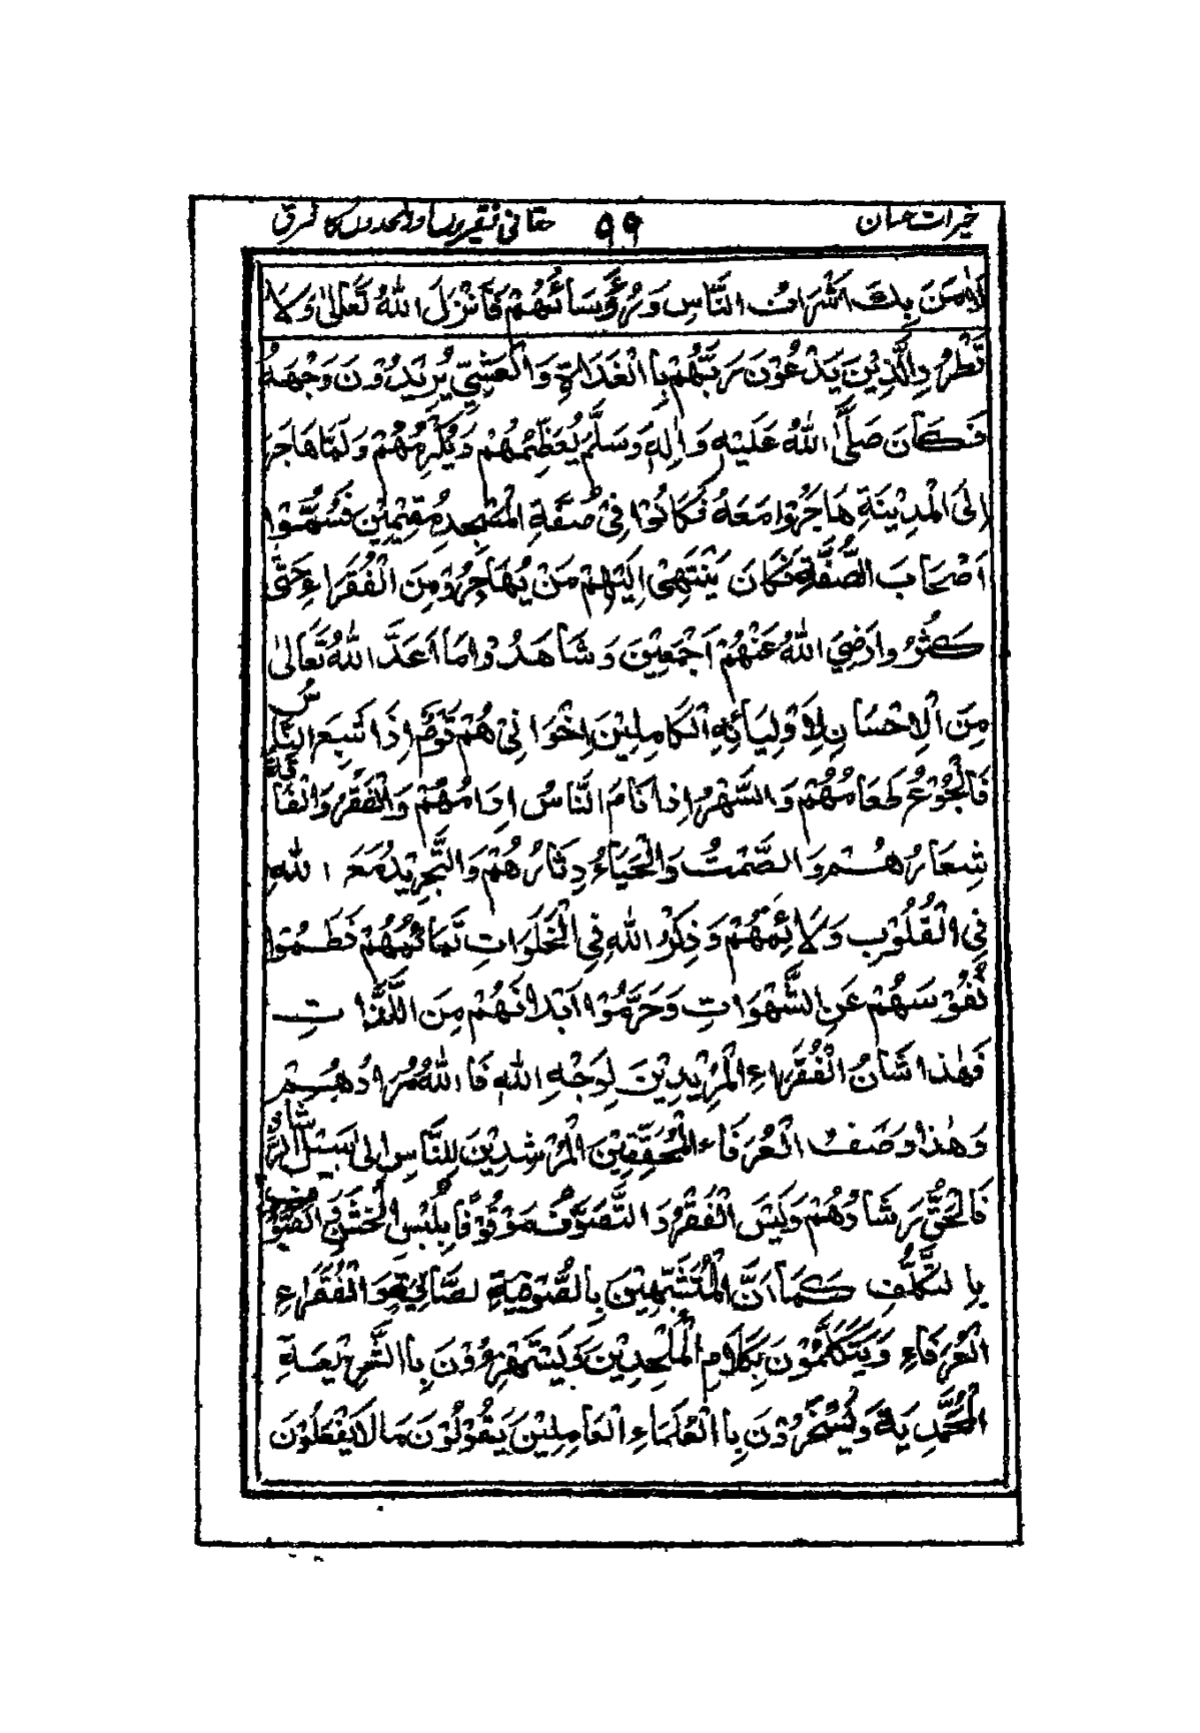 خیرات حسان ۹۹ حقانی فقیروں اور ملحدوں کا فرق
وَاٰمَنَ بِكَ اَشْرَافُ النَّاسِ وَرُءُوْسَائُهُمْ فَاَنْزَلَ اللّٰهُ تَعَالٰى وَلَا
تَطْرُدِ الَّذِيْنَ يَدْعُوْنَ رَبَّهُمْ بِالْغَدَاةِ وَالْعَشِيِّ يُرِيْدُوْنَ وَجْهَهٗ
فَكَانَ صَلَّى اللّٰهُ عَلَيْهِ وَاٰلِهٖ وَسَلَّمْ يُعَظِّمُهُمْ وَيُكْرِمُهُمْ وَلَمَّا هَاجَرَ
اِلَى الْمَدِيْنَةِ هَاجَرُوْا مَعَهٗ فَكَانُوْا فِيْ صُفَّةِ الْمَسْجِدِ مُقِيْمِيْنَ فَسُمُّوْا
اَصْحَابَ الصُّفَّةِ فَكَانَ يَنْتَهِىْ اِلَيْهِمْ مَنْ يُهَاجِرُ وْمِنَ الْفُقَرَاءِ حَتّٰى
كَثُرُوا رَضِيَ اللّٰهُ عَنْهُمْ اَجْمَعِيْنَ وَشَاهَدُوْا مَا اَعَدَّ اللّٰهُ تَعَالٰى
مِنَ الْاِحْسَانِ لِاَوْلِيَائِهِ الْكَامِلِيْنَ اِخْوَانِيْ هُمْ قَوْمٌ اِذَا شَبِعَ النَّاسُ
فَالْجُوْعُ طَعَامُهُمْ وَالسَّهْرُ اِذَا نَامَ النَّاسُ اِدَامُهُمْ وَالْفَقْرُ وَالْفَاقَةُ
شِعَارُهُمْ وَالصَّمْتُ وَالْحَيَاءُ دِثَارُهُمْ وَالتَّجْرِيْدُ مَعَ اللّٰهِ
فِي الْقُلُوْبِ وَلَائِمُهُمْ وَذِكْرُ اللّٰهِ فِي الْخَلَوَاتِ نَمَائُمُهُمْ فَطَمُوْا
نُفُوْسَهُمْ عَنِ الشَّهَوَاتِ وَحَرَّمُوْا اَبْدَانَهُمْ مِنَ اللَّذَّاتِ
فَهٰذَا شَانُ الْفُقَرَاءِ الْمُرِيْدِيْنَ لِوَجْهِ اللّٰهِ فَاللّٰهُ مُرَادُهُمْ
وَهٰذَا وَصَفُ الْعُرَفَاءِ الْمُحَقِّقِيْنَ الْمُرْشِدِيْنَ لِلنَّاسِ اِلٰى سَبِيْلِ الرَّشَادِ
فَالْحَقُّ رَشَادُهُمْ وَلَيْسَ الْفَقْرُ وَالتَّصَوُّفُ مَوْقُوْفًا بِلُبْسِ الْخَشَنِ وَالصُّوْفِ
بِالتَّكَلُّفِ كَمَا اَنَّ الْمُتَشَبِّهِيْنَ بِالصُّوْفِيَةِ الصَّافِيَةِ وَالْفُقَرَاءِ
الْعُرَفَاءِ وَيَتَكَلَّمُوْنَ بِكَلَامِ الْمُلْحِدِيْنَ وَيَسْتَهْزِءُوْنَ بِاالشَّرِيْعَةِ
الْمُحَمَّدِيَةِ وَيُسَخِّرُوْنَ بِاالْعُلَمَاءِ الْعَامِلِيْنَ يَقُوْلُوْنَ مَا لَا يَفْعَلُوْنَ